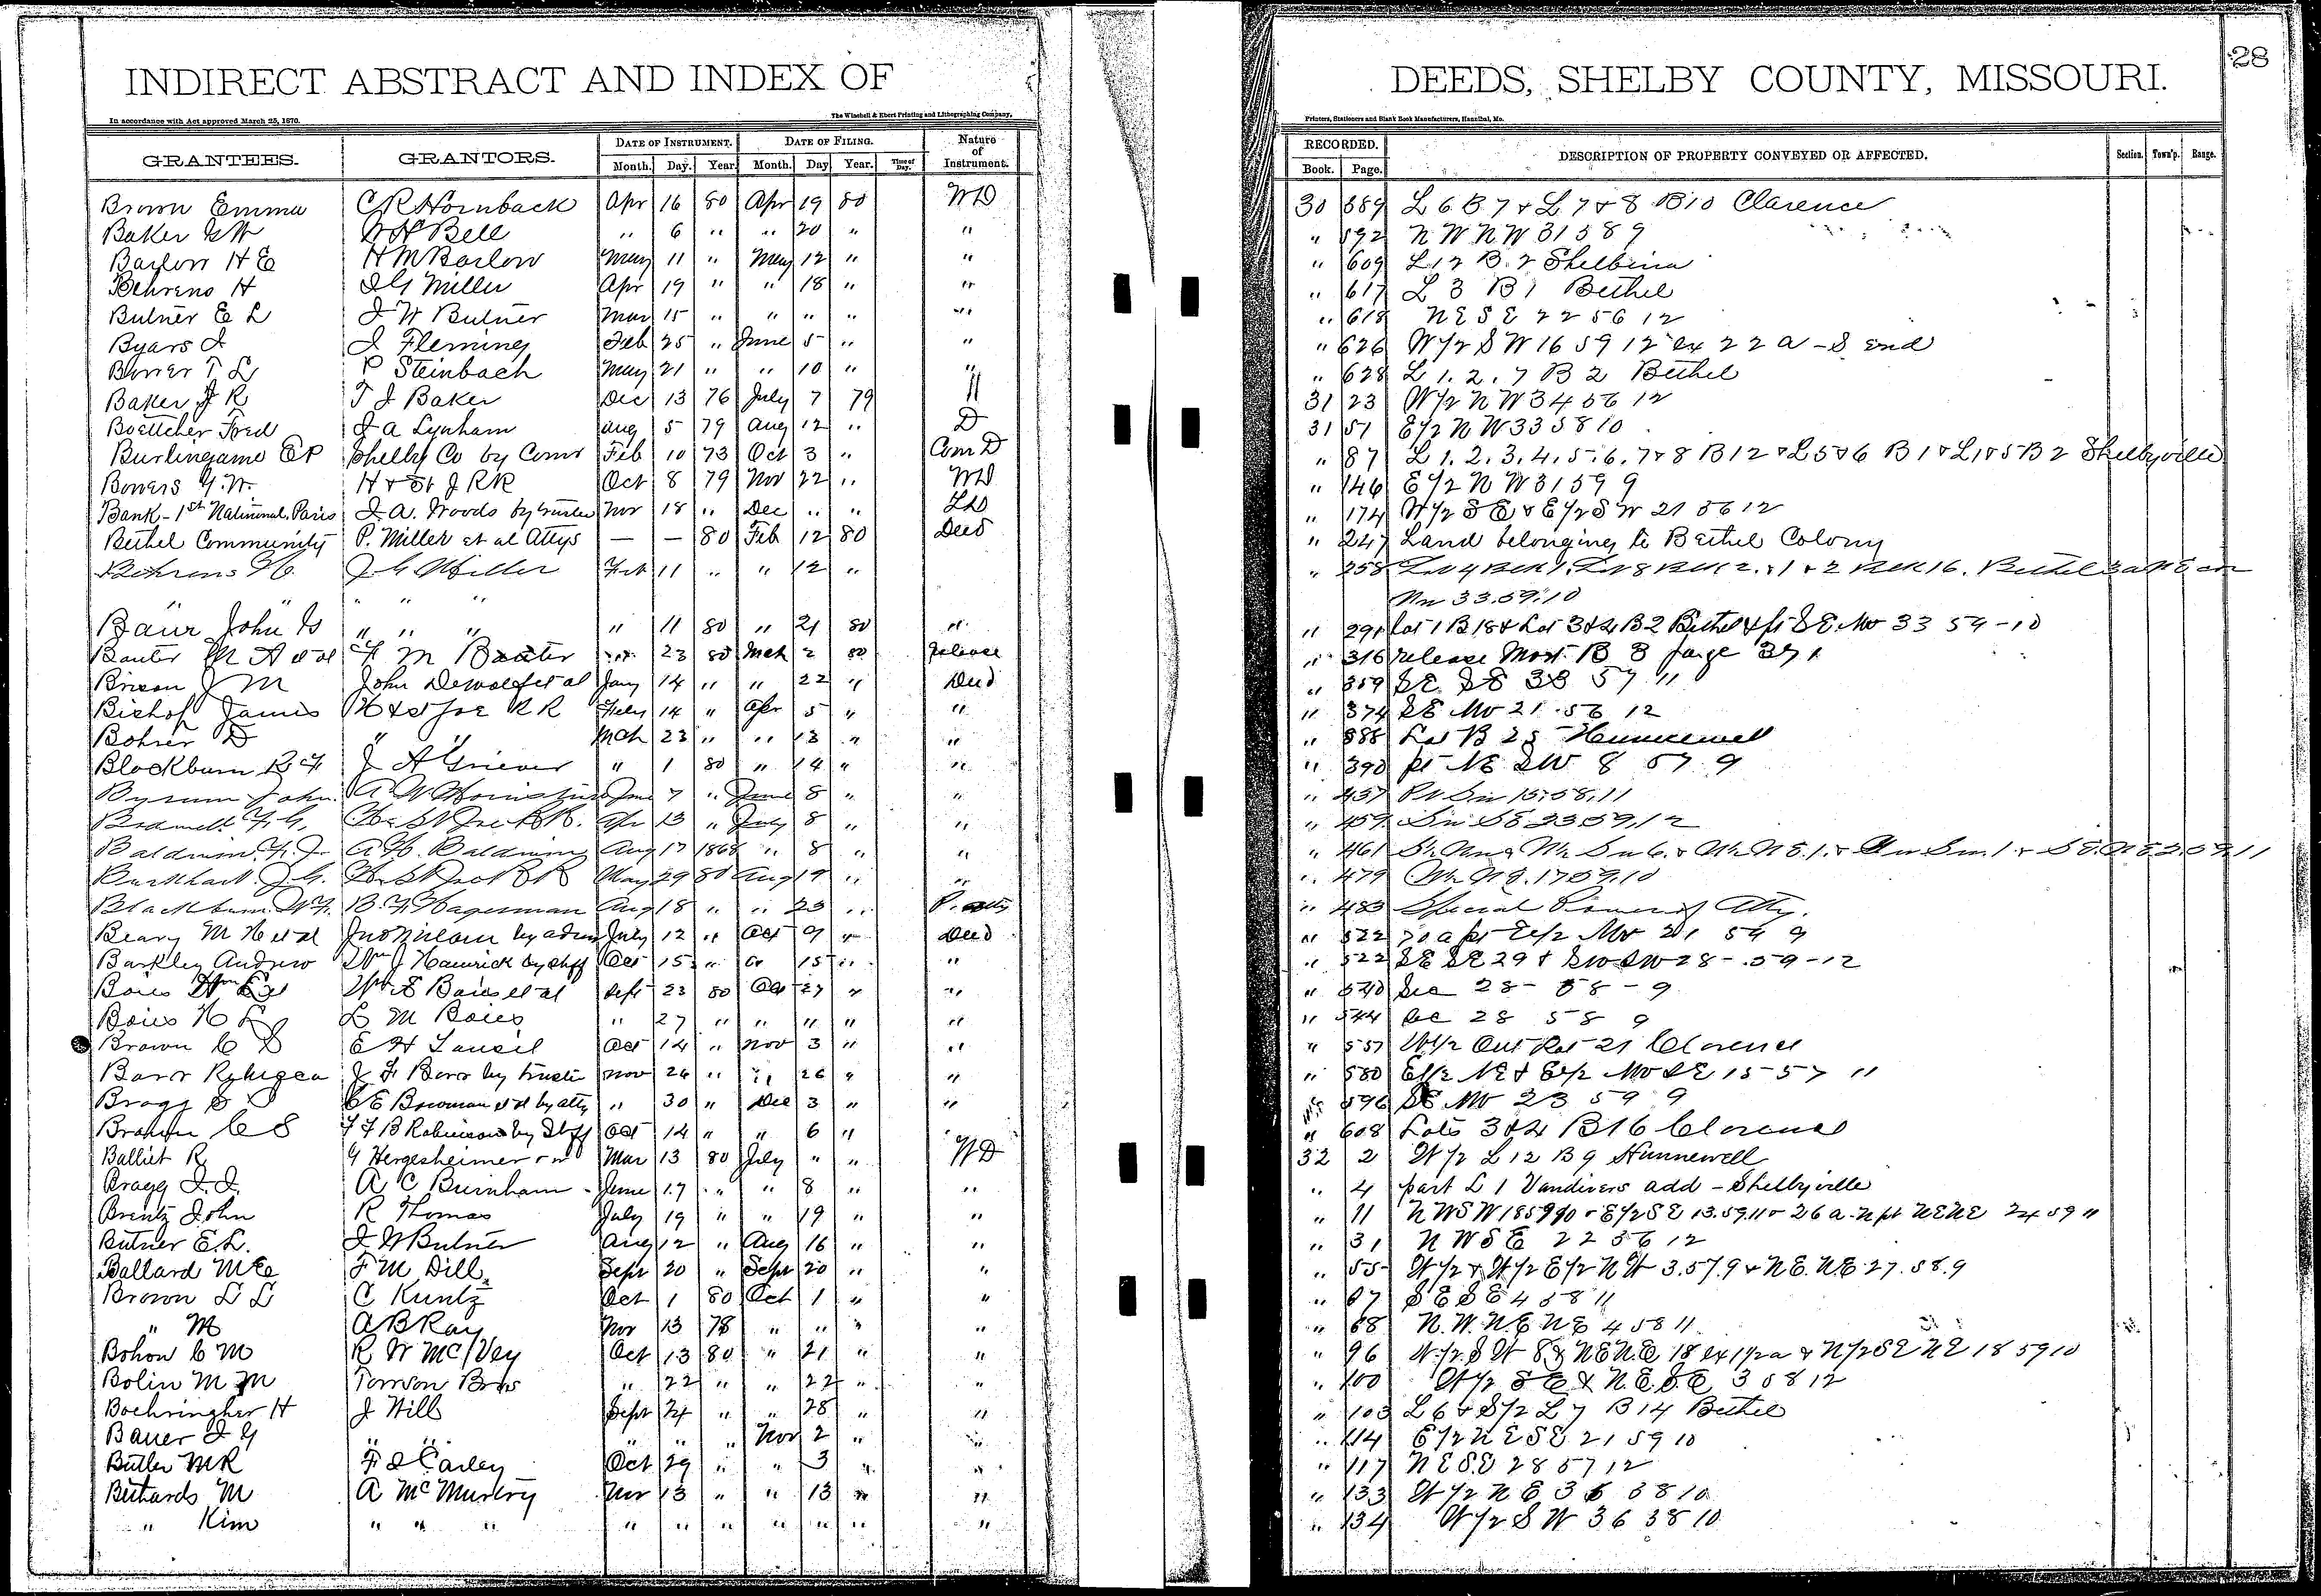 INDIRECT ABSTRACT AND INDEX OF DEEDS, SHELBY COUNTY, MISSOURI. 28
In accordance with Act approved March 25, 1870. The Winchell & Ebert Printing and Lithographing Company, Printers, Stationers and Blank Book Manufacturers, Hannibal, Mo.
GRANTEES. GRANTORS. DATE OF INSTRUMENT. DATE OF FILING. Nature of Instrument. RECORDED. DESCRIPTION OF PROPERTY CONVEYED OR AFFECTED. Section. Town'p. Range.
Month. Day. Year. Month. Day Year. Time of Day. Book. Page.
Brown Emma C R Hornback Apr 16 80 Apr 19 80 WD 30 589 L 6 B 7 & L 7 & 8 B 10 Clarence
Baker G W W H Bell " 6 " " 20 " " " 592 N W N W 31 58 9
Barlow H E H M Barlow May 11 " May 12 " " " 609 L 12 B 2 Shelbina
Behrens H J G Miller Apr 19 " " 18 " " " 617 L 3 B 1 Bethel
Butner E L J W Butner Mar 15 " " " " " " 618 N E S E 22 56 12
Byars J J Fleming Feb 25 " June 5 " " " 626 W 1/2 S W 16 59 12 ex 22 a - S end
Bower T L P Steinbach May 21 " " 10 " " " 628 L 1. 2. 7 B 2 Bethel
Baker J R T J Baker Dec 13 76 July 7 79 " 31 23 W 1/2 N W 34 56 12
Boettcher Fred J A Lynham Aug 5 79 Aug 12 " D 31 51 E 1/2 N W 33 58 10
Burlingame E P Shelby Co by Comr Feb 10 73 Oct 3 " Com D " 87 L 1. 2. 3. 4. 5. 6. 7 & 8 B 12 & L 5 & 6 B 1 & L 1 & 5 B 2 Shelbyville
Bowers G. W. H & St J RR Oct 8 79 Nov 22 " WD " 146 E 1/2 N W 31 59 9
Bank - 1st National, Paris J. A. Woods by trustee Nov 18 " Dec " " " 174 W 1/2 S E & E 1/2 S W 21 56 12
Bethel Community P. Miller et al Attys — — 80 Feb 12 80 Deed " 247 Land belonging to Bethel Colony
Behrens H. J G Miller Feb 11 " " 12 " " 258
" " " " " Nw 33.59.10
Baur John G " " " " 11 80 " 21 80 " " 291 Lot 1 B 18 & Lot 3 & 4 B 2 Bethel & pt S E. NW 33 59 - 10
Baxter M A et al F M Baxter " 23 80 Mch 2 80 Release " 316 release Mort. B 3 page 391
J M John Dewolf et al Jany 14 " " 22 " Deed " 359 S E. S E 33 57 11
Bishop James H & St Joe R R Feby 14 " Apr 5 " " " 374 S E NW 21 56 12
Bohrer D " " Mch 23 " " 13 " " " 388 Lot B 25 Hunnewell
Blackburn B F J A Griever " 1 80 " 14 " " " 390 pt N E S W 8 57 9
Bysum John. A W June 7 " June 8 " " " 457 Pt Sw 15.58.11
Bodwell F. G. H & St Joe R R. Apr 13 " July 8 " " " 459 Sw S E 23 59.12
Baldwin F. J. A H. Baldwin Aug 17 1868 " 8 " " " 461
Burkhart J. G. H & St Joe R R May 29 80 Aug 19 " " " 479
Blackburn W F. B. F. Hagerman Aug 18 " " 23 " P. atty " 483 Special Power of Atty.
Beary M H et al Jno by adm July 12 " Oct 9 " Deed " 522 70 a pt E 1/2 NW 21 59 9
Barkley Andrew Wm J Hamrick by Shff Oct 15 " " 15 " " " 522 S E S E 29 & S W S W 28 - 59 - 12
Boies Wm E Wm E Boies et al Sept 23 80 Oct 27 " " " 540 Sec 28 - 58 - 9
Boies H L L M Boies " 27 " " " " " " 544 Sec 28 58 9
Brown C S E H Lancil Oct 14 " Nov 3 " " " 557 W 1/2 Out Lot 21 Clarence
J F by trustee Nov 26 " " 26 " " " 580 E 1/2 N E & E 1/2 NW S E 15 57 11
Bragg S C E Bowman et al by atty " 30 " Dec 3 " " " 596 S E NW 23 59 9
Brown C S F F B Robinson by Shff Oct 14 " " 6 " " 608 Lots 3 & 4 B 16 Clarence
Balliet R G Hergesheimer Mar 13 80 July " " WD 32 2 W 1/2 L 12 B 9 Hunnewell
Bragg J. J. A C Burnham June 17 " " 8 " " " 4 part L 1 Vandivers add - Shelbyville
Brentz John R Thomas July 19 " " 19 " " " 11 N W S W 18 59 10 & E 1/2 S E 13.59.11 & 26 a. N pt N E N E 24 59 11
Butner E. L. J W Butner Aug 12 " Aug 16 " " " 31 N W S E 22 56 12
Ballard M E F M Dill Sept 20 " Sept 20 " " " 55 W 1/2 & W 1/2 E 1/2 N W 3.57.9 & N E. N E 27.58.9
Brown L L C Kuntz Oct 1 80 Oct 1 " " " 67 S E S E 4 58 11
" M A B Ray Nov 13 78 " " " " " 68 N. W. N. E N E 4 58 11
Bohon C M R W McVey Oct 13 80 " 21 " " " 96 W 1/2 S W 8 & N E N. E 18 ex 1 1/2 a & N 1/2 S E N E 18 59 10
Bolin M M Tomson Bros " 22 " " 22 " " " 100 W 1/2 S E & N. E. S. E 3 58 12
Boehringher H J Will Sept 24 " " 28 " " " 103 L 6 & S 1/2 L 7 B 14 Bethel
Bauer J G " " " " " Nov 2 " " " 114 E 1/2 N E S E 21 59 10
Butler M R F D Carley Oct 29 " " 3 " " " 117 N E S. E 28 57 12
Bethards M A McMurtry Nov 13 " " 13 " " " 133 W 1/2 N E 36 58 10
" Kim " " " " " " " " " " " 134 W 1/2 S W 36 58 10